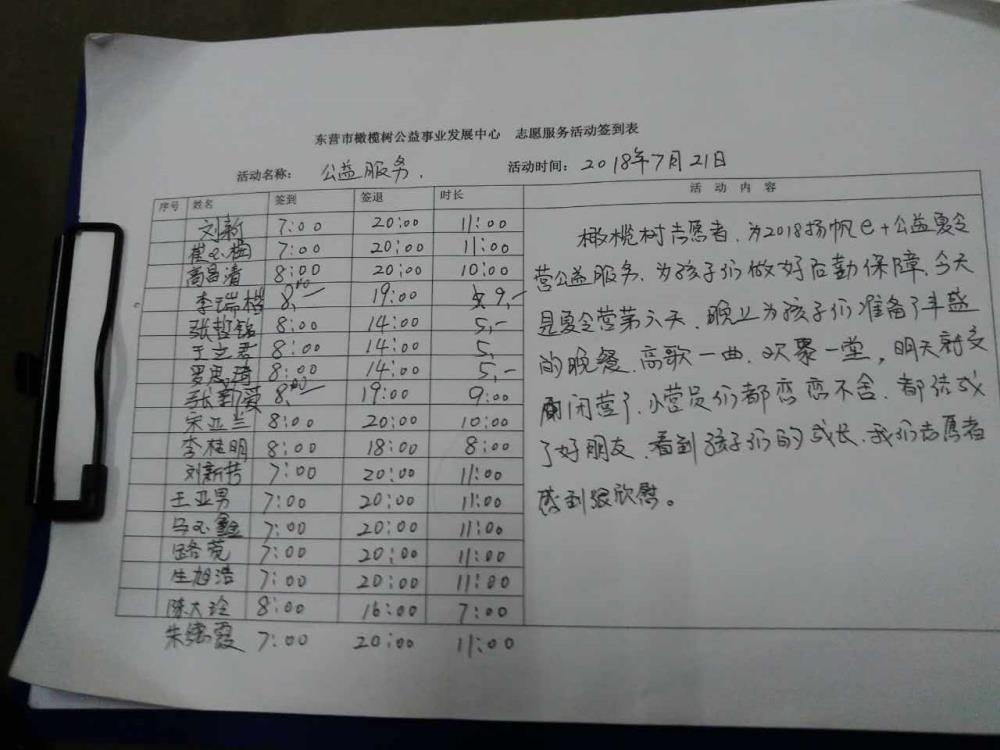 东营市橄榄树公益事业发展中心 志愿服务活动签到表
活动名称: 公益服务. 活动时间: 2018年7月21日
序号 姓名 签到 签退 时长 活动内容
刘新 7:00 20:00 11:00
崔 7:00 20:00 11:00
高昌清 8:00 20:00 10:00
李瑞楷 8:00 19:00 9,-
张哲铭 8:00 14:00 5,-
于 君 8:00 14:00 5,
罗思琦 8:00 14:00 5,-
张 爱 8:00 19:00 9:00
宋亚兰 8:00 20:00 10:00
李桂明 8:00 18:00 8:00
刘新 7:00 20:00 11:00
王亚男 7:00 20:00 11:00
马 鑫 7:00 20:00 11:00
7:00 20:00 11:00
生旭浩 7:00 20:00 11:00
陈大 8:00 16:00 7:00
朱 霞 7:00 20:00 11:00
橄榄树志愿者,为2018扬帆e+公益夏令
营公益服务.为孩子们做好后勤保障.今天
是夏令营第六天.晚上为孩子们准备了丰盛
的晚餐.高歌一曲.欢聚一堂,明天就
闭营了.小营员们都恋恋不舍.都结成
了好朋友.看到孩子们的成长.我们志愿者
感到很欣慰。